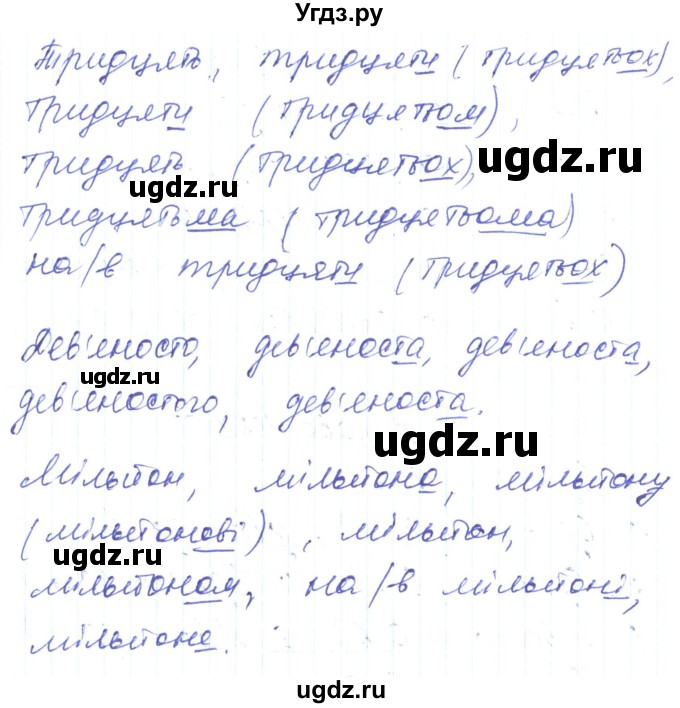 Угдз.ру
Тридцять, тридцяти (тридцятьох),
тридцяти (тридцятьом),
тридцять (тридцятьох),
ugdz.ru
ugdz.ru
тридцятьма (тридцятьома)
на/в тридцяти (тридцятьох)
Дев'яносто, дев'яноста, дев'яноста,
ugdz.ru
дев'яностого, дев'яноста.
ugdz.ru
Мільйон, мільйона, мільйону
(мільйонові), мільйон,
ugdz.ru
мільйоном, на/в мільйоні,
мільйоне.
ugdz.ru